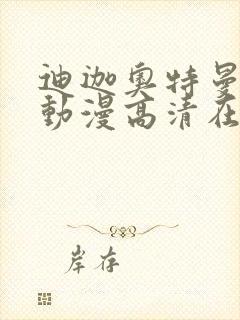 迪迦奥特曼
動漫高清在
岸存